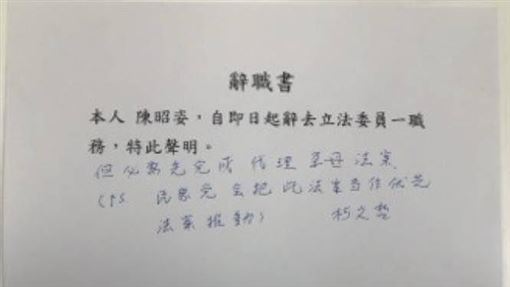 辭職書
本人 陳昭姿，自即日起辭去立法委員一職
務，特此聲明。
但必需先完成 代理孕母法案
（PS 民眾党会把此法案当作优先
法案推動） 柯文哲